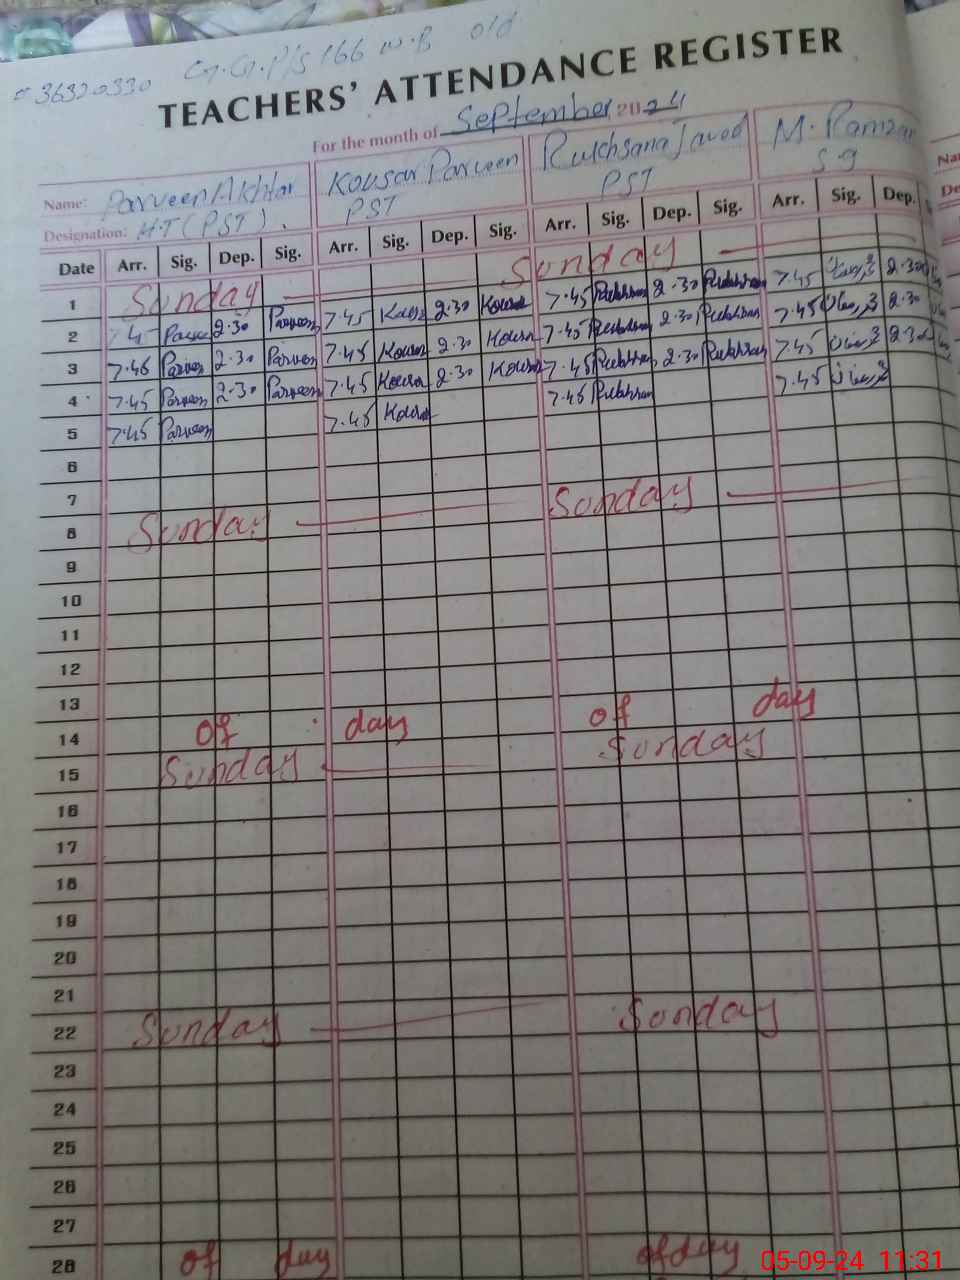 36320330 G.G.P/S 166 W.B old
TEACHERS' ATTENDANCE REGISTER
For the month of September 2024
Name: Parveen Akhtar Kousar Parveen Rukhsana Javed M. Ramzan
Designation: H.T (PST). PST PST S.g
Date Arr. Sig. Dep. Sig. Arr. Sig. Dep. Sig. Arr. Sig. Dep. Sig. Arr. Sig. Dep.
1 Sunday Sunday
2 7.45 2.30 Parveen 7.45 2.30 7.45 2.30 7.45 2.30
3 7.45 2.30 7.45 2.30 7.45 2.30 7.45 2.30
4 7.45 2.30 7.45 2.30 7.45 2.30 7.45 2.30
5 7.45 Parveen 7.45 7.45 7.45
6
7
8 Sunday Sunday
9
10
11
12
13
14 of day of day
15 Sunday Sunday
16
17
18
19
20
21
22 Sunday Sunday
23
24
25
26
27
28 of day of day
05-09-24 11:31